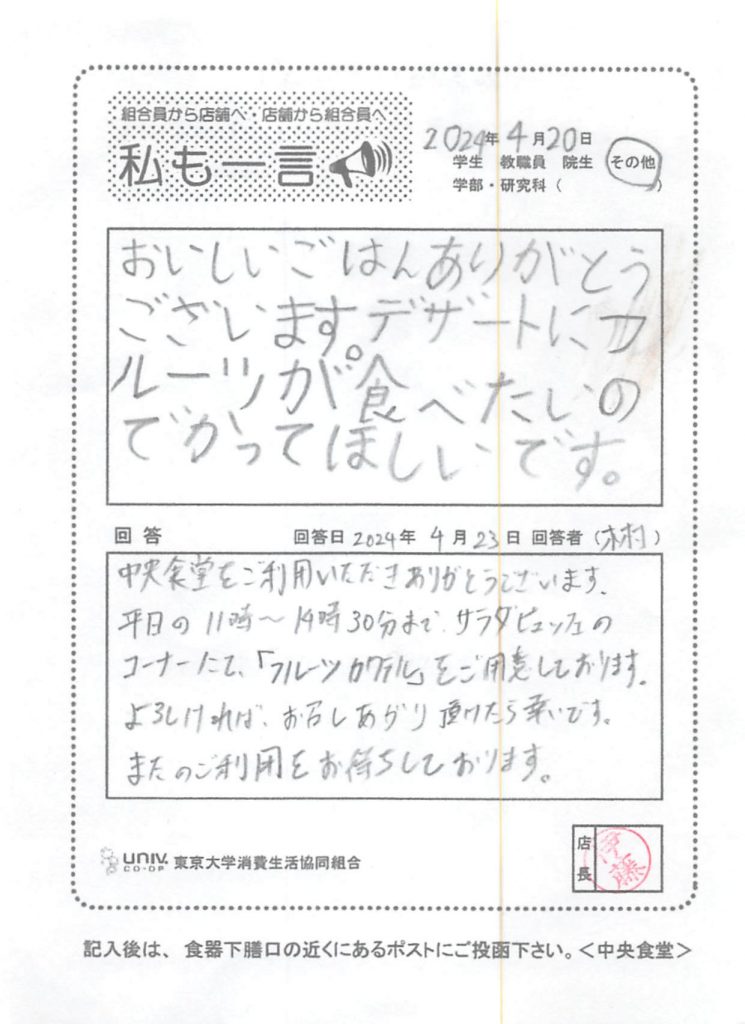 組合員から店舗へ・店舗から組合員へ
私も一言
2024年4月20日
学生 教職員 院生 その他
学部・研究科( )
おいしいごはんありがとう
ございます。デザートにフ
ルーツが食べたいの
でかってほしいです。
回答 回答日2024年4月23日 回答者(木村)
中央食堂をご利用いただきありがとうございます。
平日の11時〜14時30分まで、サラダビュッフェの
コーナーにて、「フルーツカクテル」をご用意しております。
よろしければ、お召しあがり頂けたら幸いです。
またのご利用をお待ちしております。
UNIV. CO-OP 東京大学消費生活協同組合
店長
記入後は、食器下膳口の近くにあるポストにご投函下さい。<中央食堂>